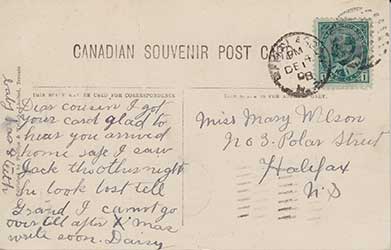 CANADIAN SOUVENIR POST CARD
PM
DE 17
08
1
THIS SPACE MAY BE USED FOR CORRESPONDENCE
Dear cousin I got
your card glad to
hear you arrived
home safe I saw
Jack the other night
he look lost tell
Grand I cannot go
over till after X'mas
write soon. Daisy
Miss Mary Wilson
No 3. Polar Street
Halifax
N.S